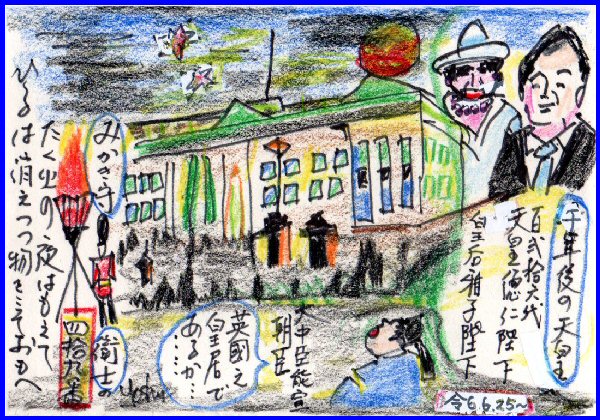 千年後の天皇
百弐拾六代
天皇徳仁陛下
皇后雅子陛下
大中臣能宣
朝臣
英國之
皇居で
あるか……
みかき守
衛士の
たく火の夜はもえて
ひるは消えつつ物をこそおもへ
四拾九番
令6.6.25～